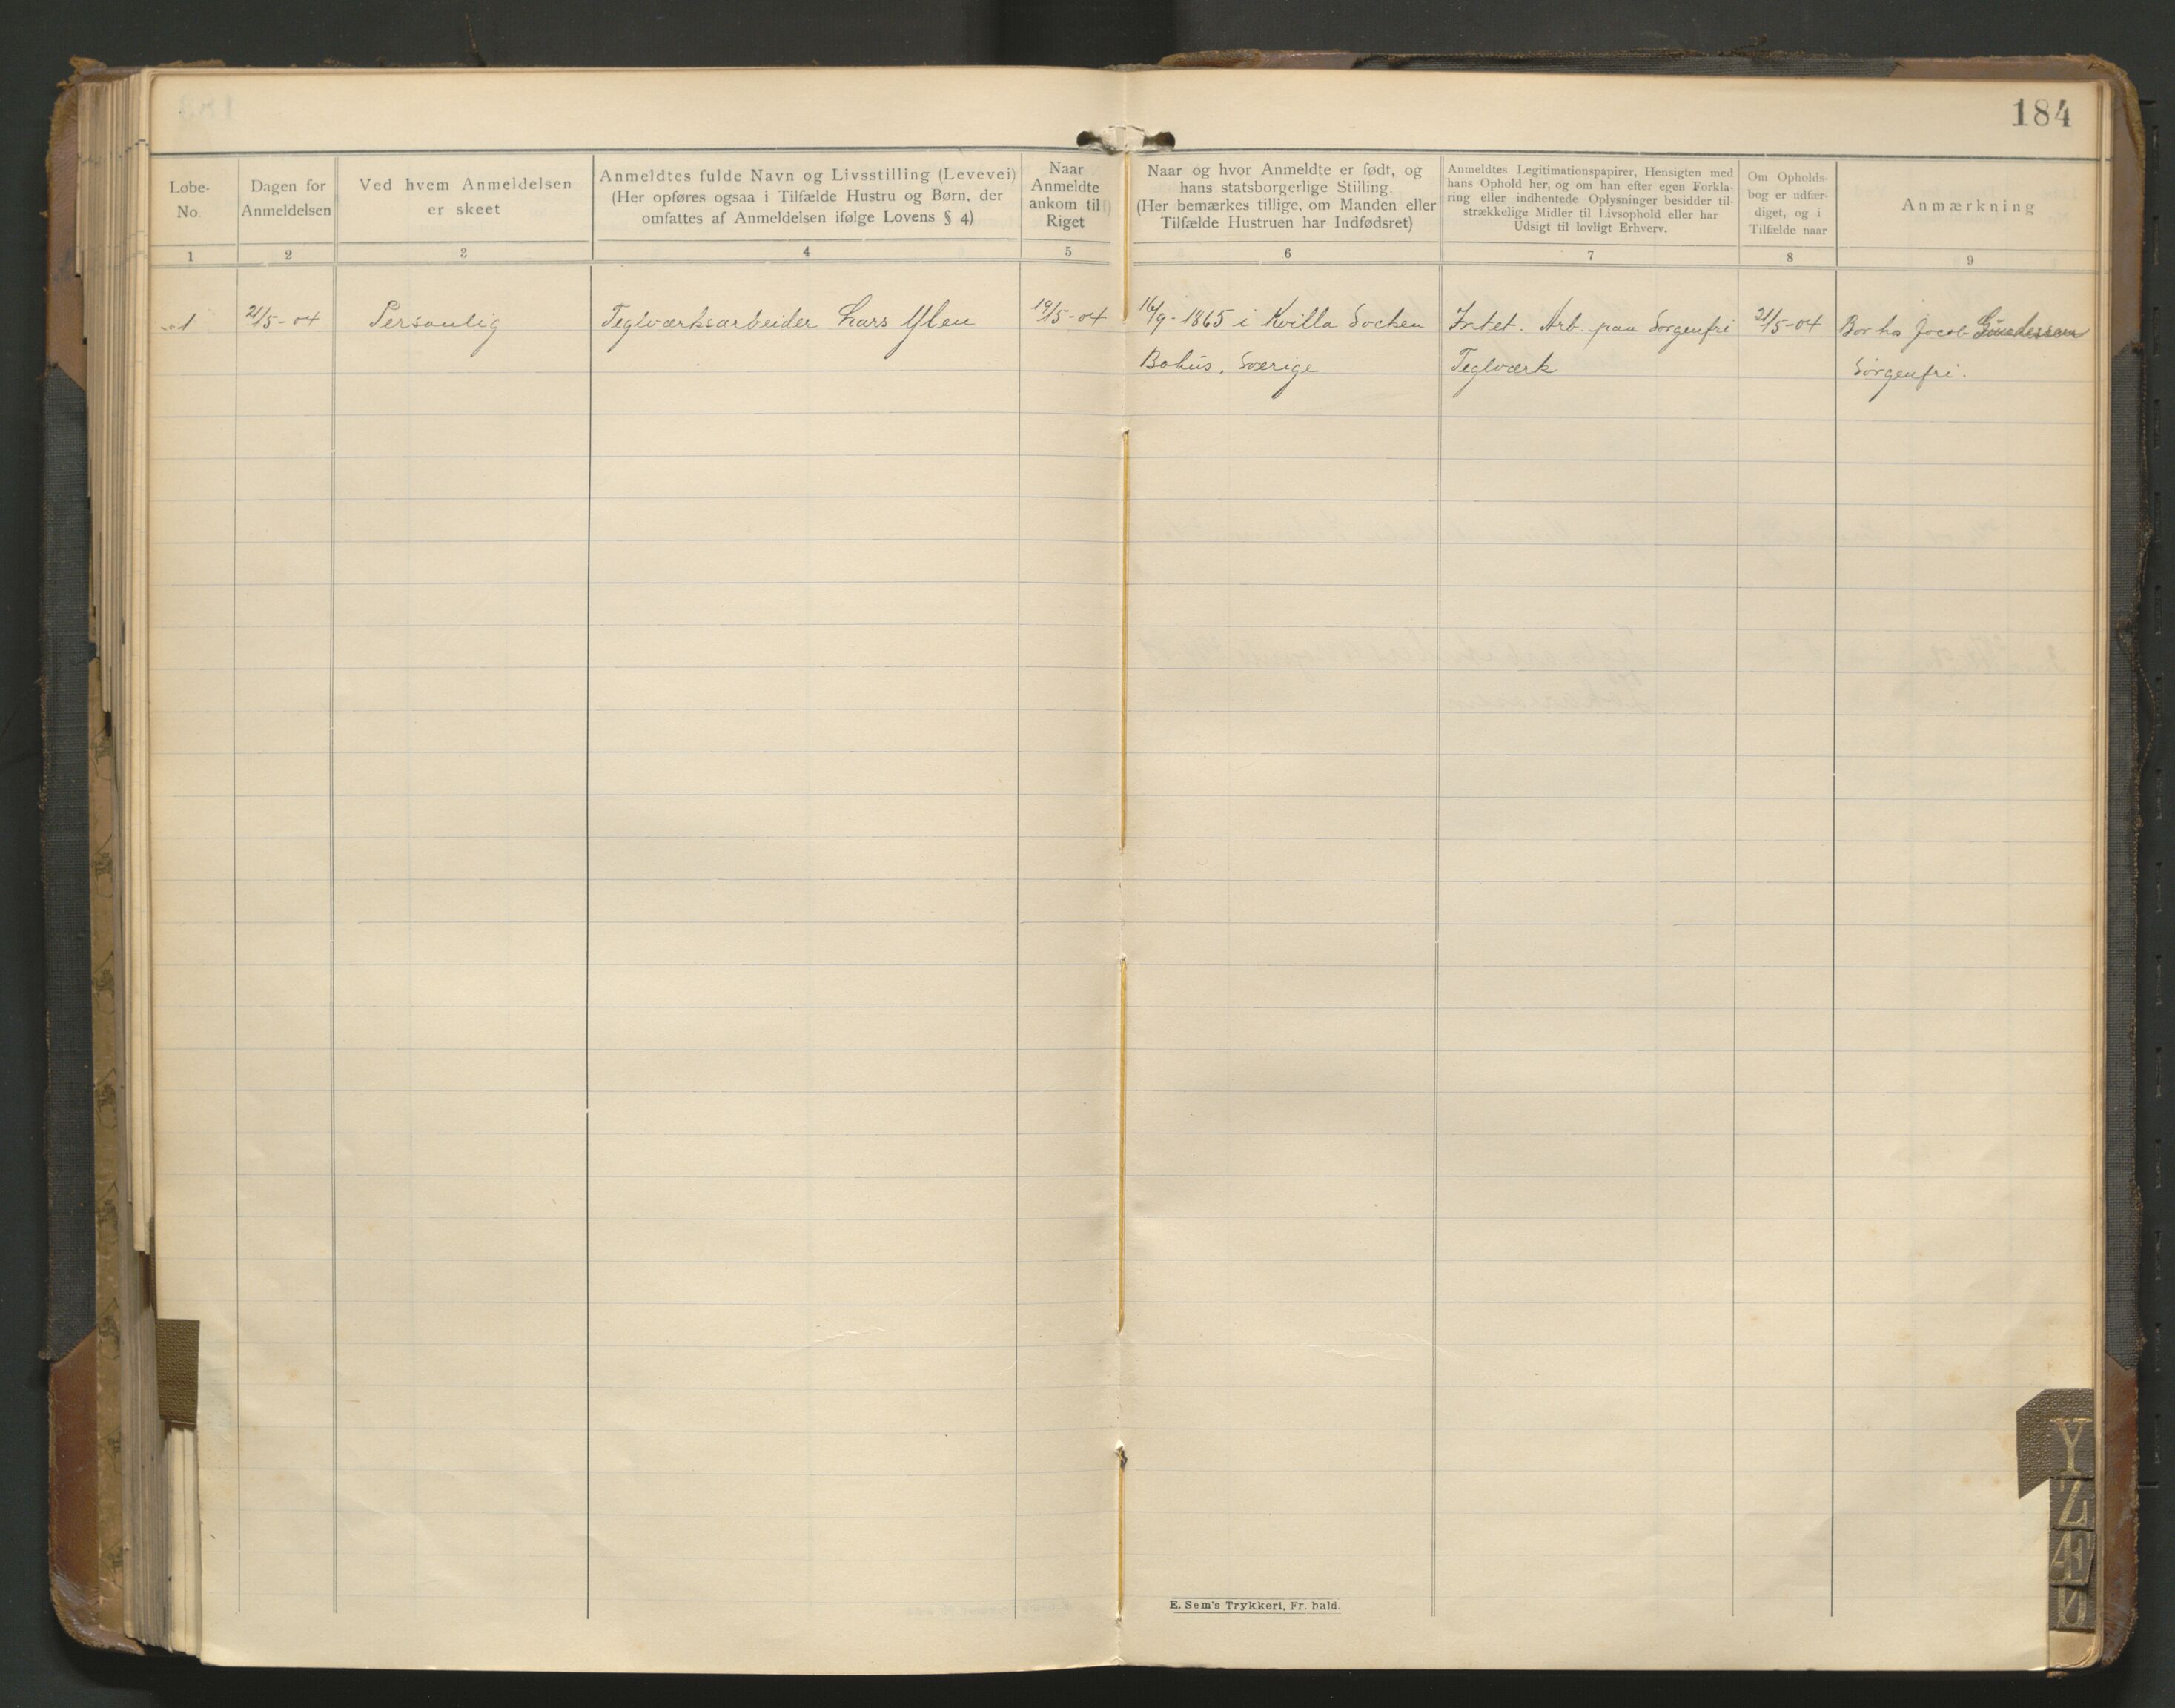 184
Løbe-
No.
Dagen for
Anmeldelsen
Ved hvem Anmeldelsen
er skeet
Anmeldtes fulde Navn og Livsstilling (Levevei)
(Her opføres ogsaa i Tilfælde Hustru og Børn, der
omfattes af Anmeldelsen ifølge Lovens § 4)
Naar
Anmeldte
ankom til
Riget
Naar og hvor Anmeldte er født, og
hans statsborgerlige Stilling.
(Her bemærkes tillige, om Manden eller
Tilfælde Hustruen har Indfødsret)
Anmeldtes Legitimationspapirer, Hensigten med
hans Ophold her, og om han efter egen Forkla-
ring eller indhentede Oplysninger besidder til-
strækkelige Midler til Livsophold eller har
Udsigt til lovligt Erhverv.
Om Opholds-
bog er udfær-
diget, og i
Tilfælde naar
Anmærkning
1 2 3 4 5 6 7 8 9
1
21/5-04
Personlig
Teglværksarbeider Lars Ylen
19/5-04
16/9-1865 i Kvilla Socken
Bohus, Sverige
Intet. Arb. paa Sorgenfri
Teglværk
21/5-04
Bor hos Jacob Gundersen
Sorgenfri.
E. Sem's Trykkeri, Fr. hald.
Y
Z
Æ
Ø